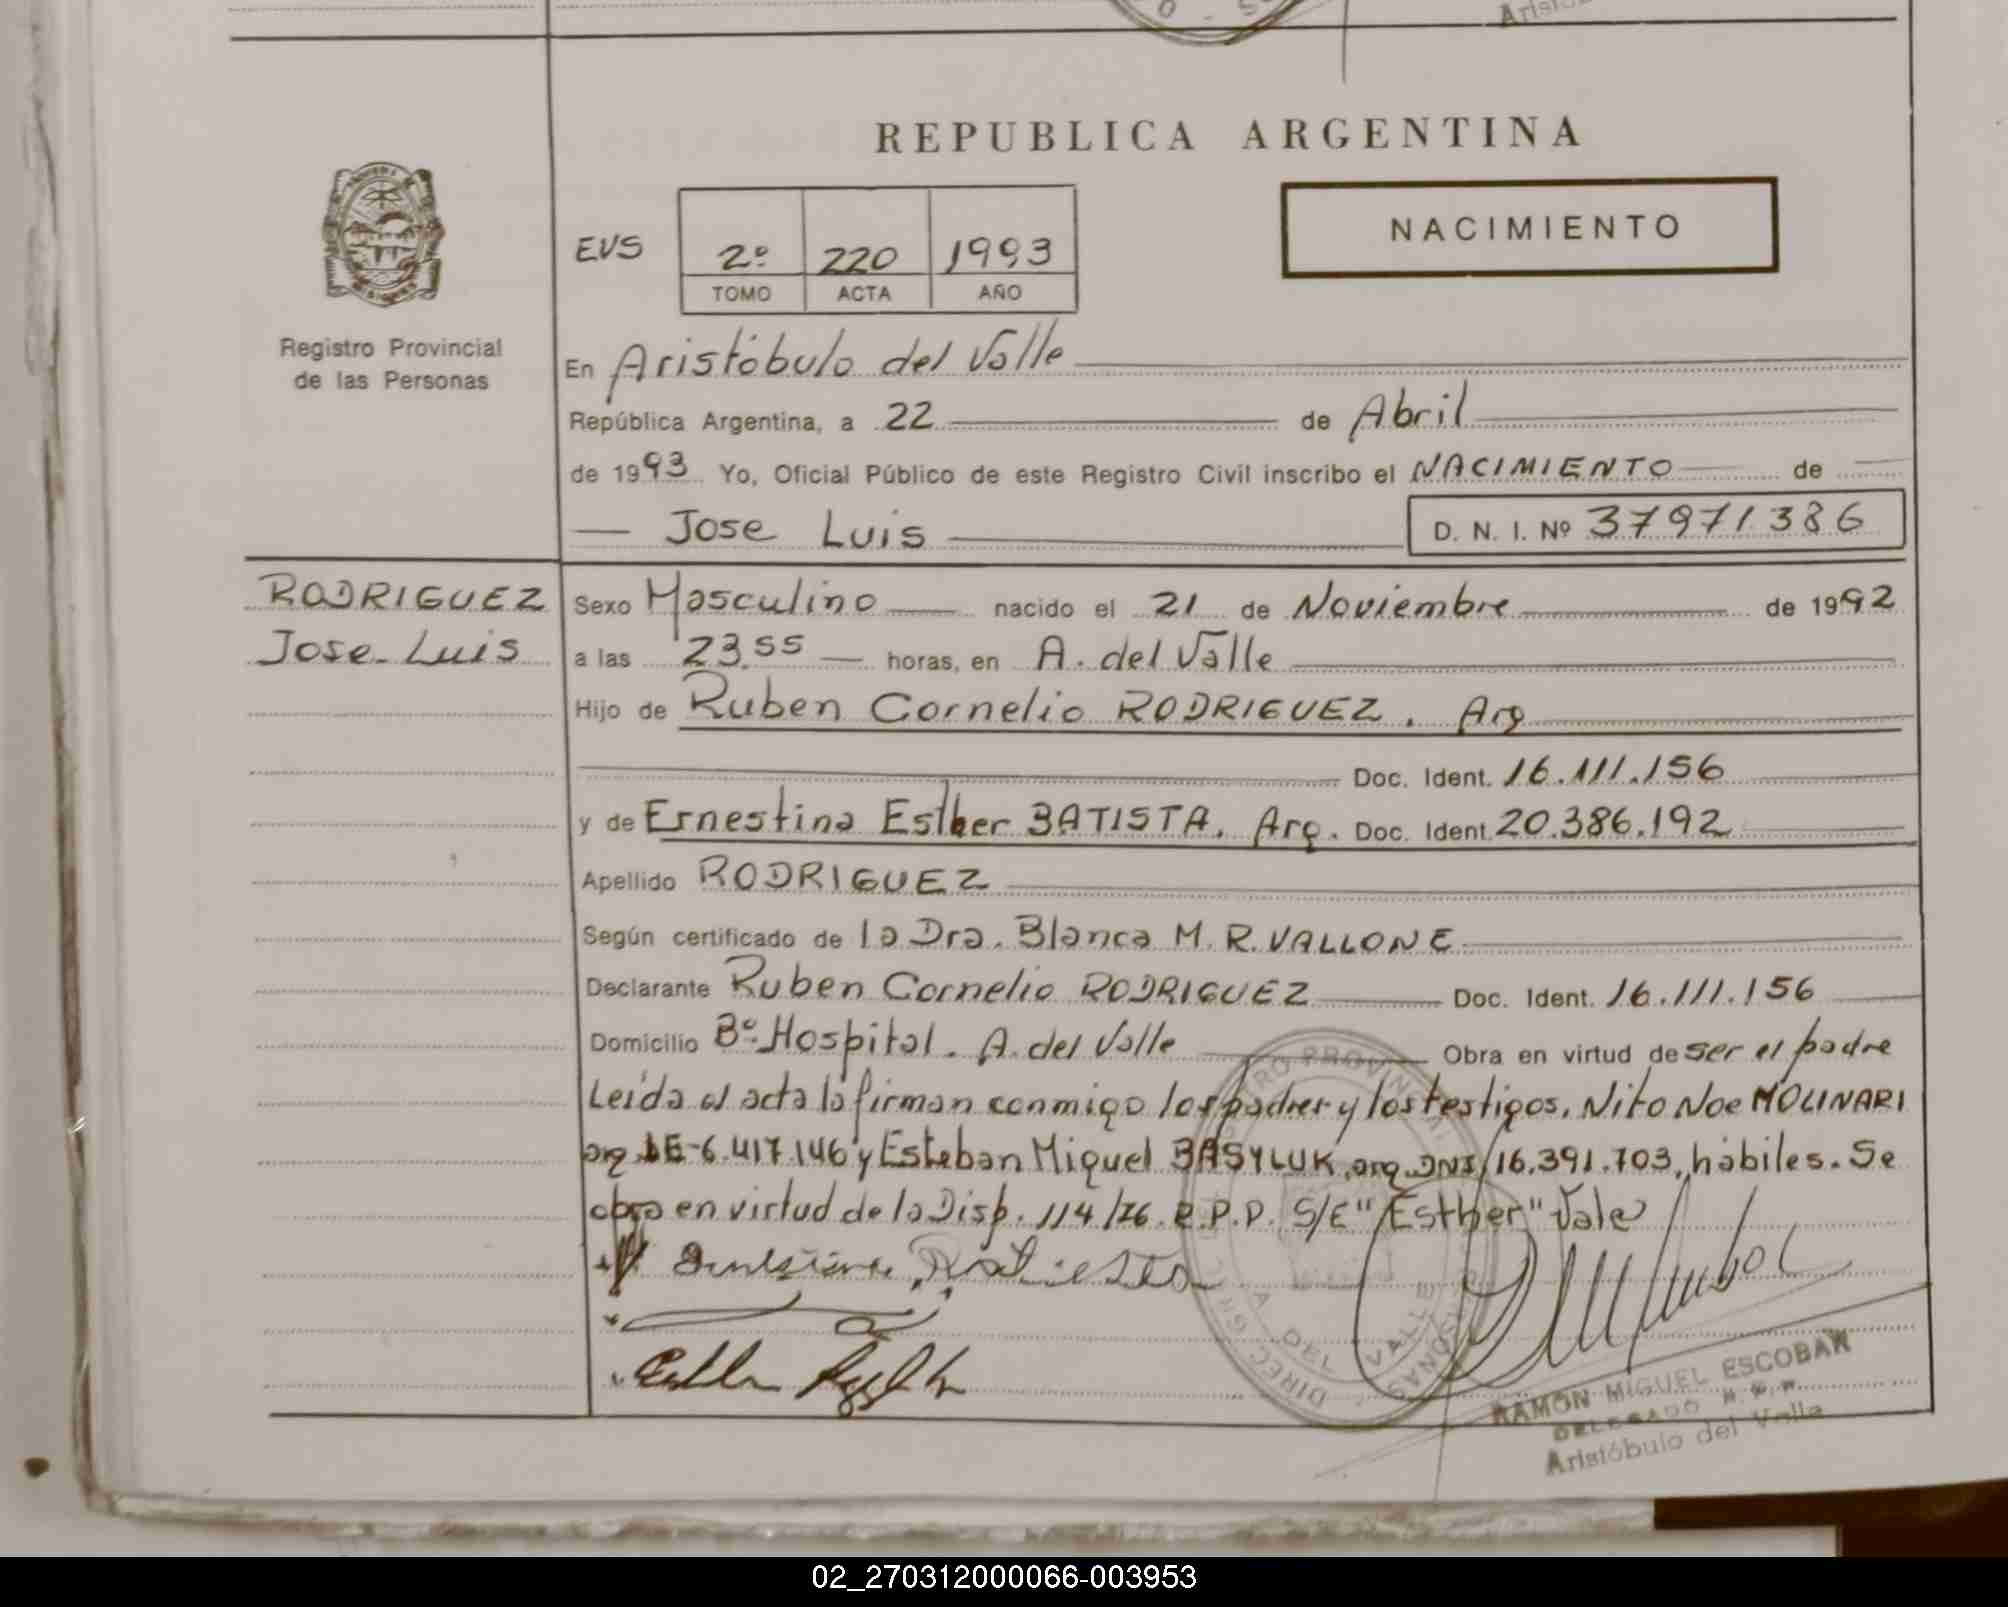 REPUBLICA ARGENTINA
NACIMIENTO
EVS 2º 220 1993
TOMO ACTA AÑO
Registro Provincial
de las Personas
En Aristóbulo del Valle
República Argentina, a 22 de Abril
de 1993 Yo, Oficial Público de este Registro Civil inscribo el NACIMIENTO de
Jose Luis D. N. I. Nº 37971386
RODRIGUEZ
Jose Luis
Sexo Masculino nacido el 21 de Noviembre de 1992
a las 23.55 horas, en A. del Valle
Hijo de Ruben Cornelio RODRIGUEZ. Arg
Doc. Ident. 16.111.156
y de Ernestina Esther BATISTA. Arg. Doc. Ident. 20.386.192
Apellido RODRIGUEZ
Según certificado de la Dra. Blanca M. R. VALLONE
Declarante Ruben Cornelio RODRIGUEZ Doc. Ident. 16.111.156
Domicilio Bº Hospital. A. del Valle Obra en virtud de ser el padre
Leída el acta la firman conmigo los padres y los testigos, Nito Noe MOLINARI
arg LE-6.417.146 y Esteban Miguel BASYLUK, arg DNI 16.391.703, hábiles. Se
obra en virtud de la Disp. 114/76. R.P.P. S/E "Esther" Vale
RAMON MIGUEL ESCOBAR
DELEGADO
Aristóbulo del Valle
02_270312000066-003953